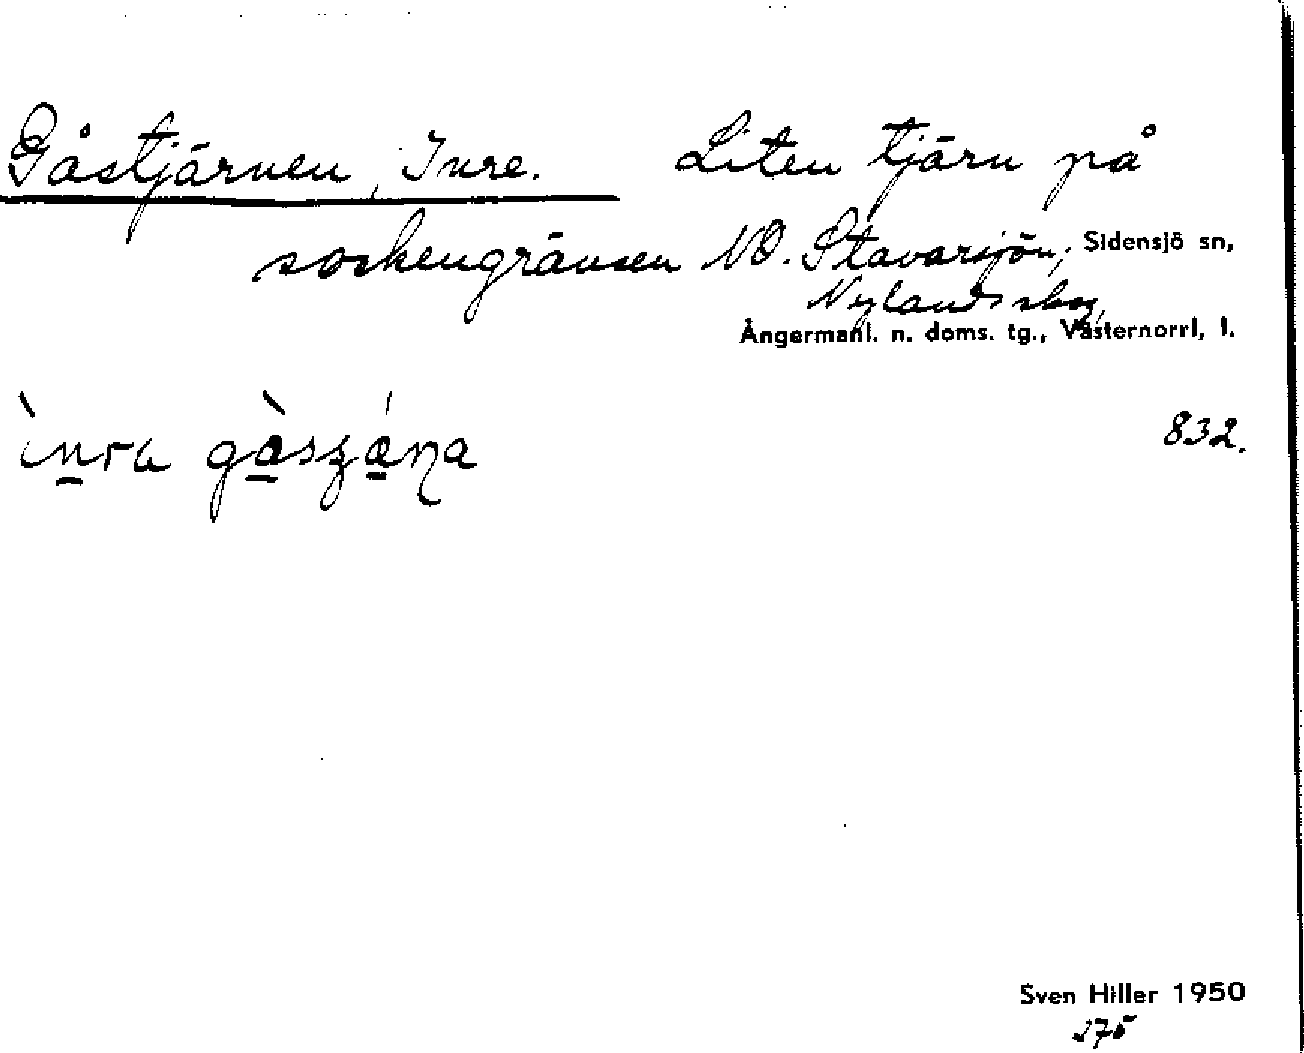 Gåstjärnen, Inre. Liten tjärn på
sockengränsen NO. Stavarsjön, Sidensjö sn,
Nylands skog,
Ångermanl. n. doms. tg., Västernorrl, l.
832.
Sven Hiller 1950
275